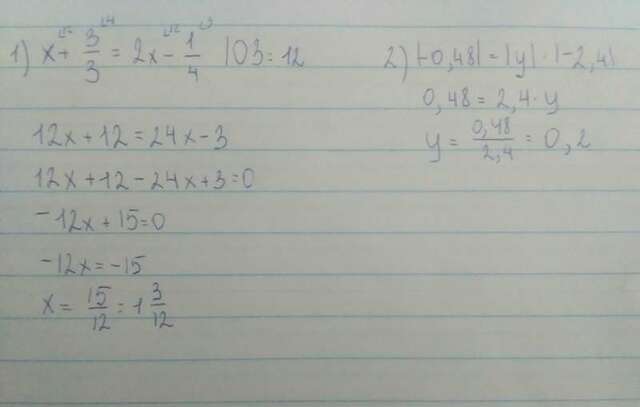 1) x + 3/3 = 2x - 1/4 |03 = 12
12x + 12 = 24x - 3
12x + 12 - 24x + 3 = 0
-12x + 15 = 0
-12x = -15
x = 15/12 = 1 3/12
2) |-0,48| = |y| · |-2,4|
0,48 = 2,4 · y
y = 0,48/2,4 = 0,2